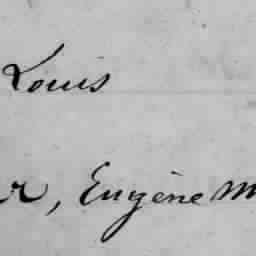 Louis
r, Eugène M